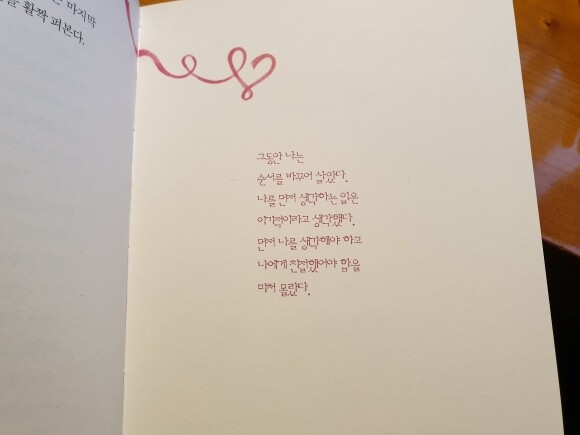 는 마지막
을 활짝 펴본다.
그동안 나는
순서를 바꾸어 살았다.
나를 먼저 생각하는 일은
이기적이라고 생각했다.
먼저 나를 생각해야 하고
나에게 친절했어야 함을
미처 몰랐다.